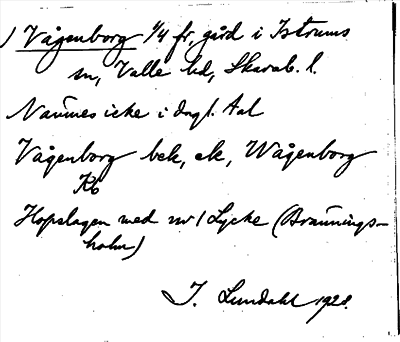 ) Vågenborg 1/4 fr, gård i Istrums
sn, Valle hd, Skarab. l.
Nämnes icke i dagl. tal
Vågenborg bek, ek, Wågenborg
Kb
Hopslagen med nr 1 Lycke (Brännings-
holm)
J. Lundahl 1928.